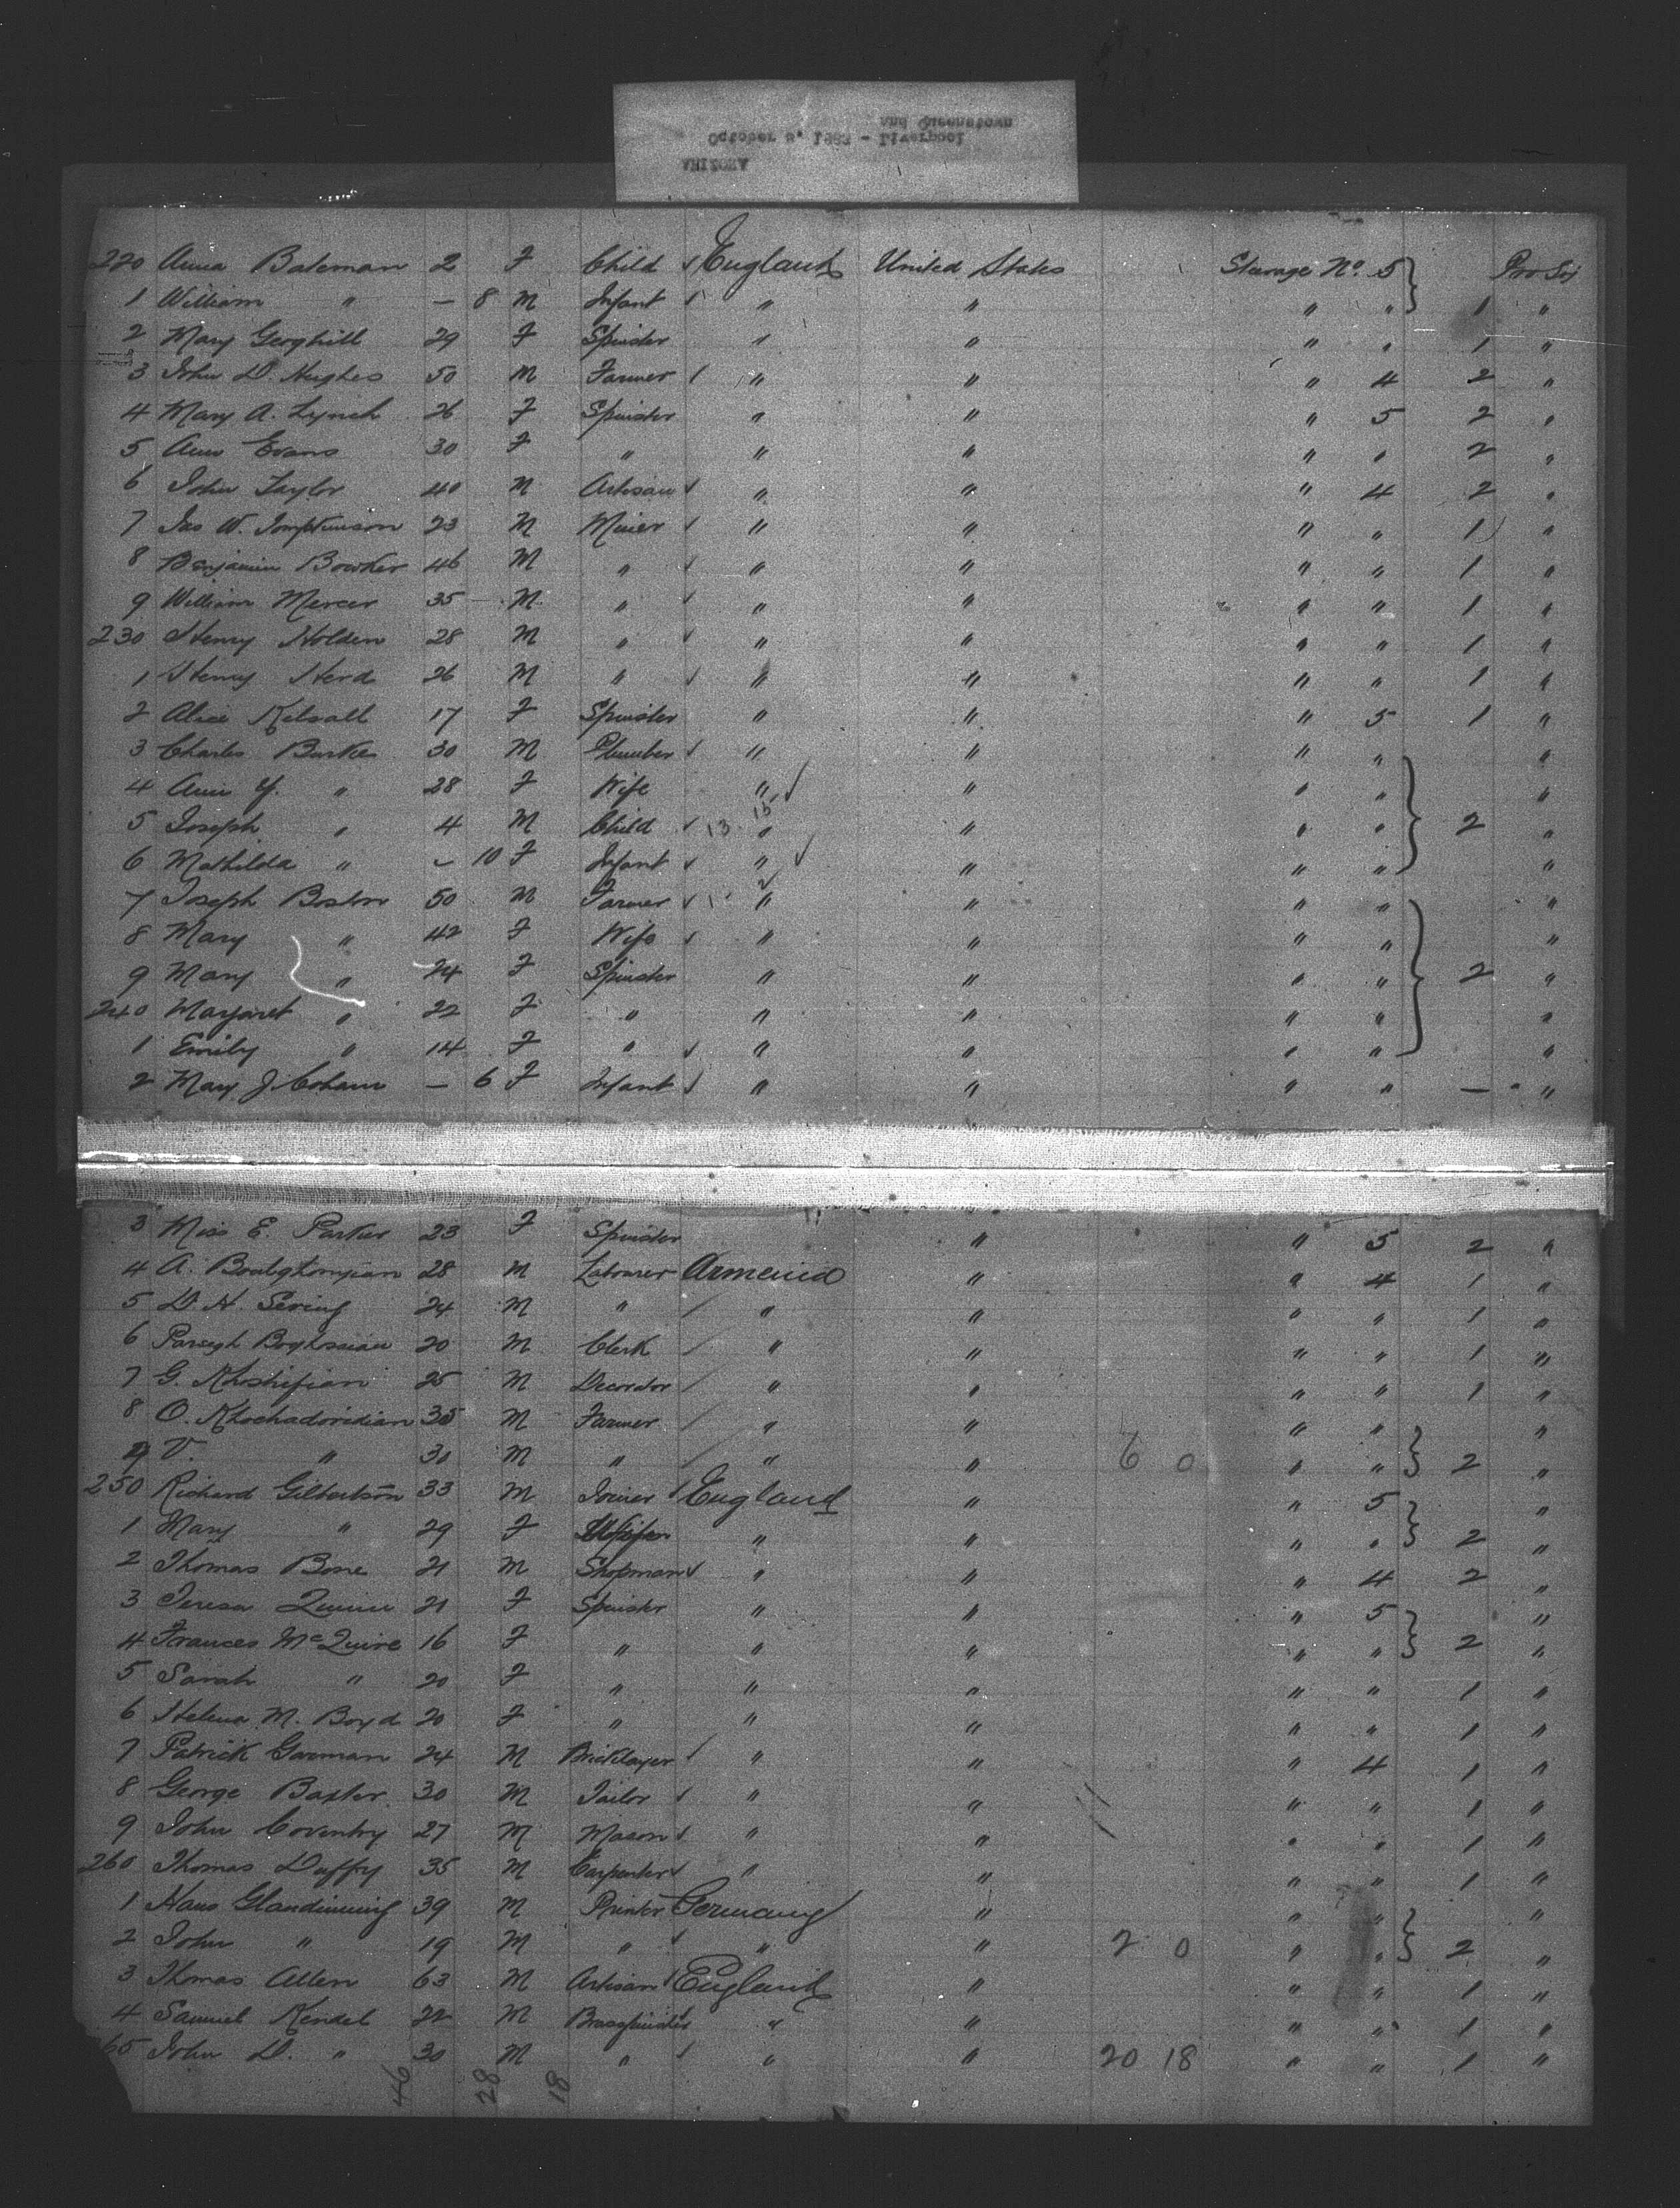 ARIZONA
October 8, 1883 - Liverpool
and Queenstown
220 Anna Bateman 2 F Child ✓ England United States Steerage No. 5 Pro Soj
1 William " — 8 M Infant ✓ " " " " 1 "
2 Mary 29 F Spinster " " " " 1 "
3 John D. Hughes 50 M Farmer / " " " 4 2 "
4 Mary A. Lynch 26 F Spinster " " " 5 2 "
5 Ann Evans 30 F " " " " " 2 "
6 John Taylor 40 M Artisan ✓ " " " 4 2 "
7 Jas W. Tompkinson 23 M Miner ✓ " " " " 1 "
8 Benjamin Bowker 46 M " ✓ " " " " 1 "
9 William Mercer 35 M " ✓ " " " " 1 "
230 Henry Holden 28 M " ✓ " " " " 1 "
1 Henry Herd 26 M " ✓ " " " " 1 "
2 Alice Kelsall 17 F Spinster " " " 5 1 "
3 Charles Burke 30 M Plumber ✓ " " " " "
4 Ann Y. " 28 F Wife " ✓ " " " "
5 Joseph " 4 M Child ✓ 13 15 " " " " 2 "
6 Mathilda " – 10 F Infant ✓ " ✓ " " " "
7 Joseph Boston 50 M Farmer ✓ " " " " "
8 Mary " 42 F Wife ✓ " " " " "
9 Mary " 24 F Spinster " " " " 2 "
240 Margaret " 22 F " " " " " "
1 Emily " 14 F " ✓ " " " " "
2 Mary J. — 6 F Infant ✓ " " " " — "
3 Miss E. Parker 23 F Spinster " " 5 2 "
4 A. 28 M Labourer Armenia " " 4 1 "
5 D. H. 24 M " / " " " " 1 "
6 Parsegh Boghosian 20 M Clerk / " " " " 1 "
7 G. 25 M Decorator / " " " " 1 "
8 O. Khachadoridian 35 M Farmer / " " " " "
9 V. " 30 M " / " " 6 0 " " 2 "
250 Richard Gilbertson 33 M Joiner / England " " 5 "
1 Mary " 29 F Wife " " " " 2 "
2 Thomas Bone 21 M Shopman ✓ " " " 4 2 "
3 Teresa Quinn 21 F Spinster " " " 5 "
4 Frances McQuire 16 F " " " " " 2 "
5 Sarah " 20 F " " " " " 1 "
6 Helena M. Boyd 20 F " " " " " 1 "
7 Patrick Gorman 24 M Bricklayer / " " " 4 1 "
8 George Baxter 30 M Tailor ✓ " " " " 1 "
9 John Coventry 27 M Mason ✓ " " " " 1 "
260 Thomas Duffy 35 M Carpenter ✓ " " " " 1 "
1 Hans Glandinning 39 M Printer Germany " " " "
2 John " 19 M " ✓ " " 2 0 " " 2 "
3 Thomas Allen 63 M Artisan / England " " " 1 "
4 Samuel Kendel 22 M " " " " 1 "
65 John D. " 30 M " / " " 20 18 " " 1 "
46 28 18